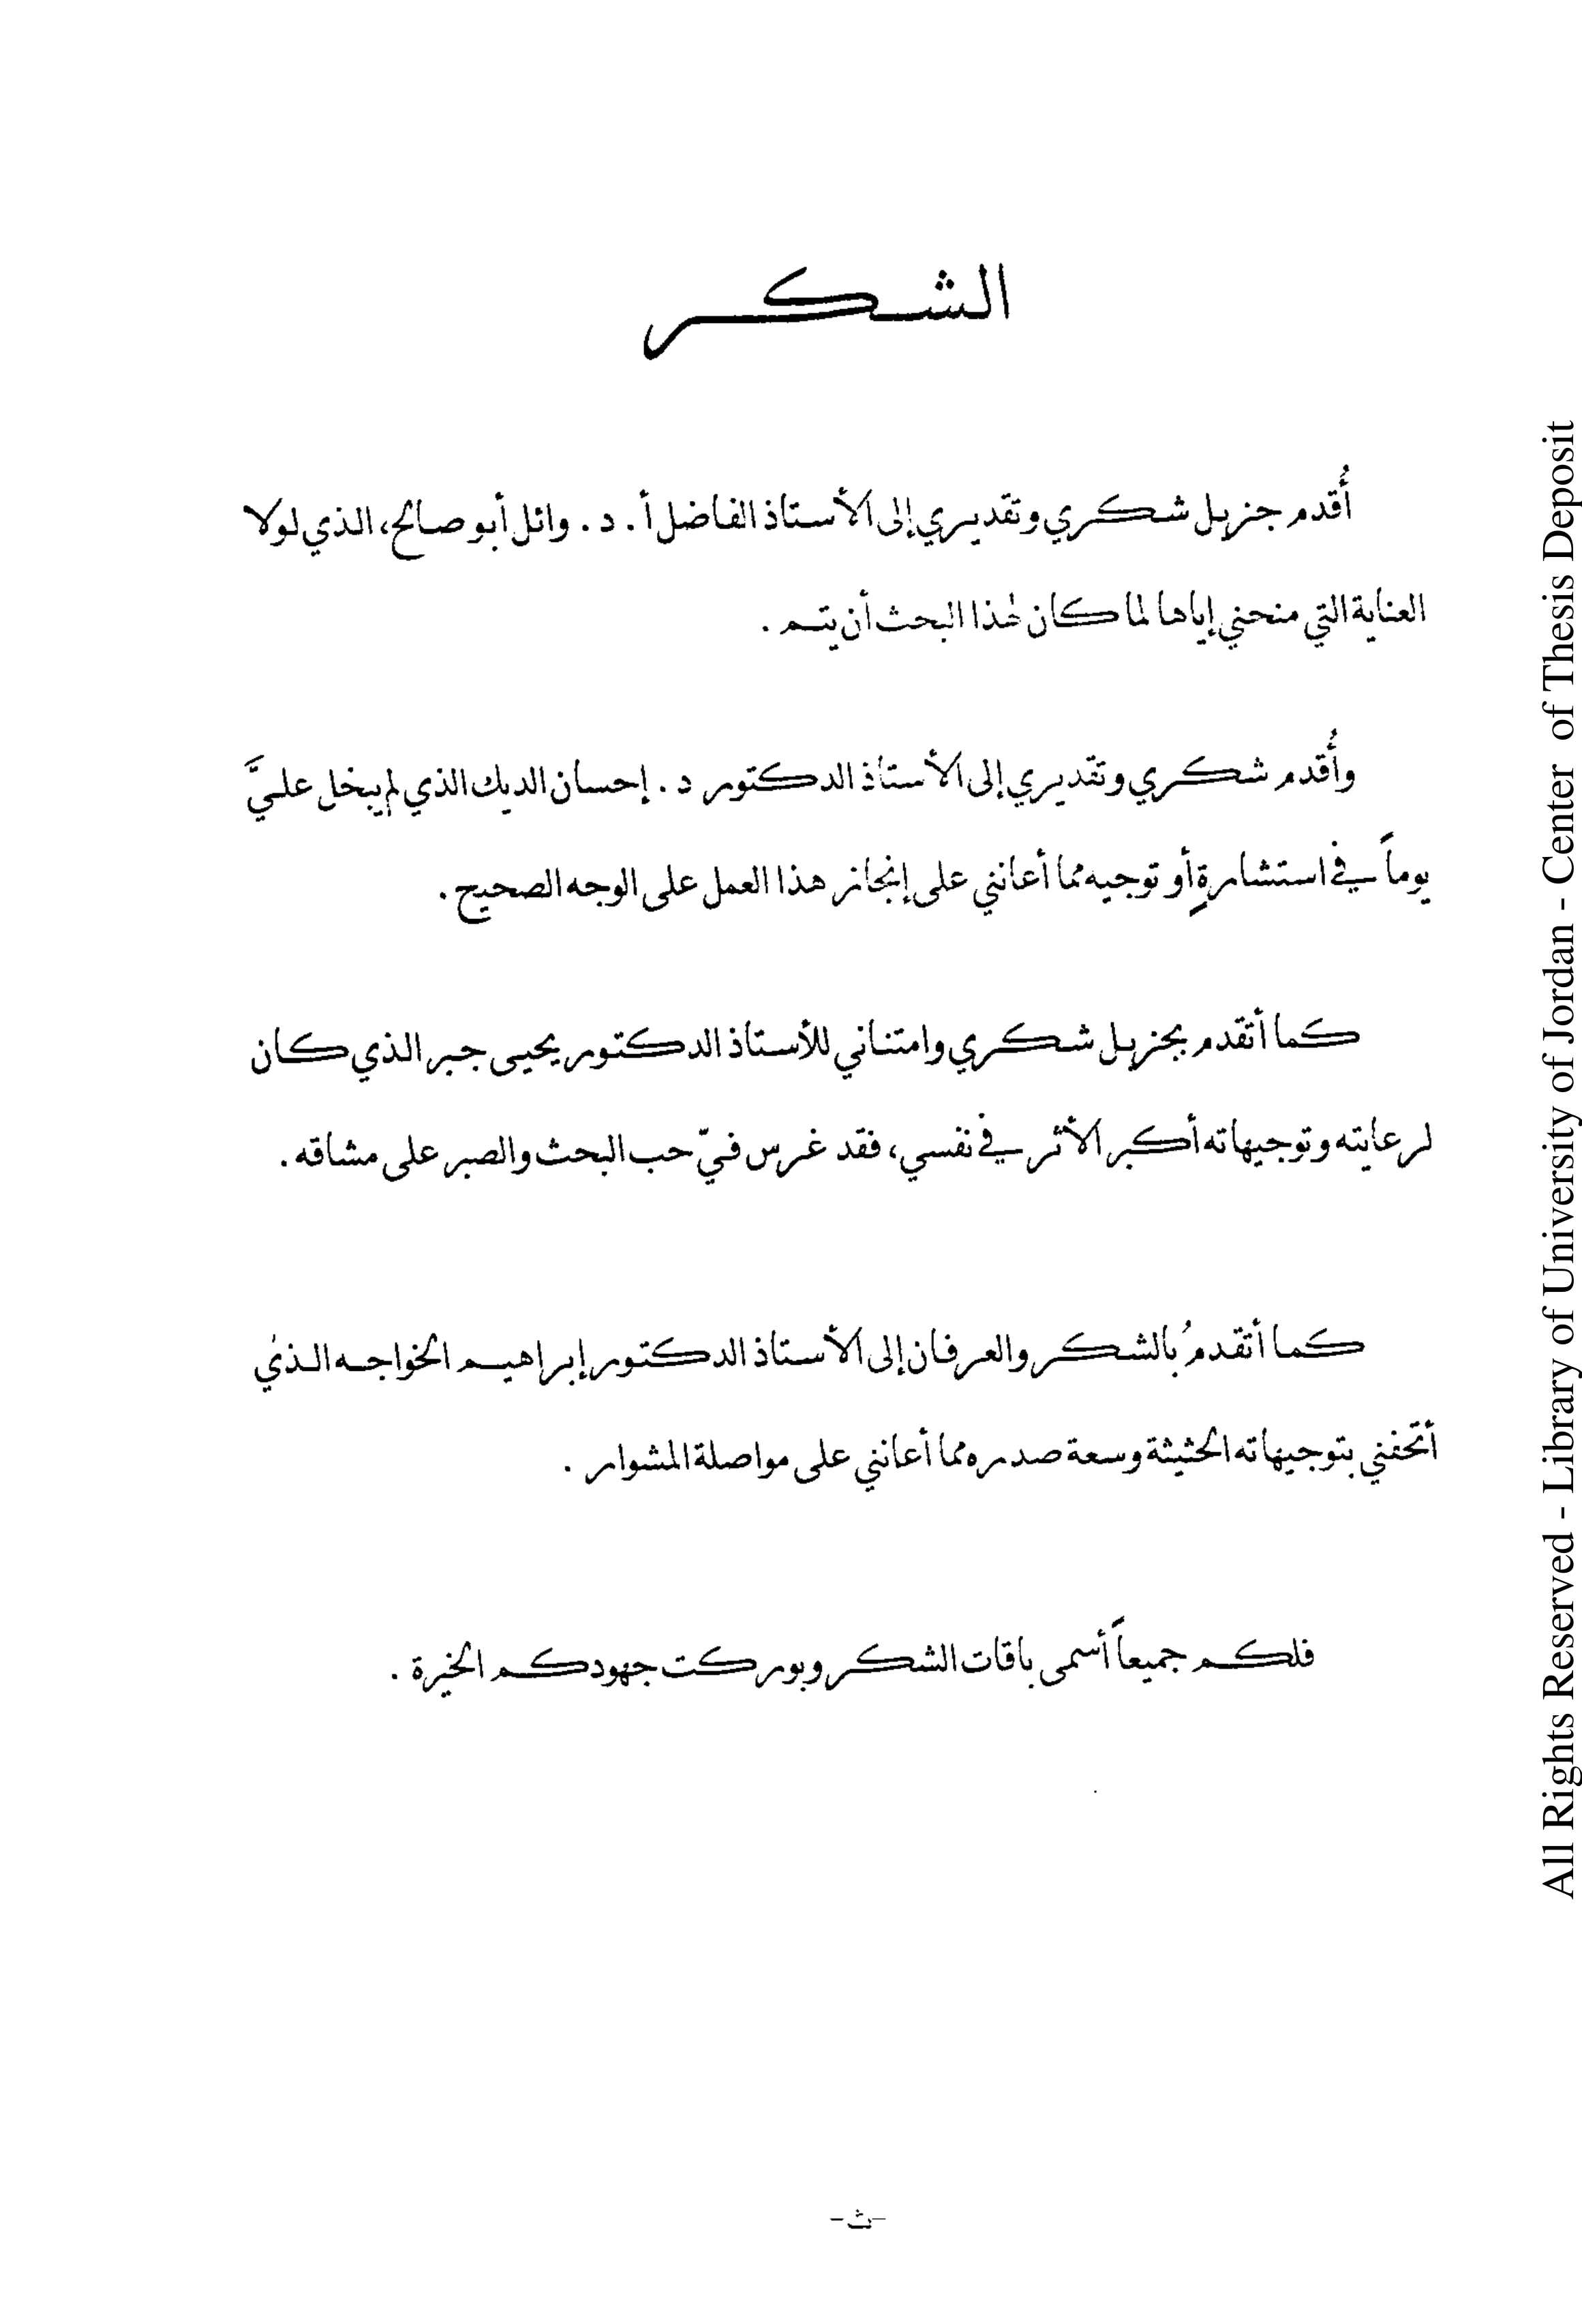 الشكر
أُقدم جزيل شكري وتقديري إلى الأستاذ الفاضل أ. د. وائل أبو صالح، الذي لولا
العناية التي منحني إياها لما كان لهذا البحث أن يتم .
وأُقدم شكري وتقديري إلى الأستاذ الدكتور د. إحسان الديك الذي لم يبخل عليَّ
يوماً في استشارةٍ أو توجيه مما أعانني على إنجاز هذا العمل على الوجه الصحيح .
كما أتقدم بجزيل شكري وامتناني للأستاذ الدكتور يحيى جبر الذي كان
لرعايته وتوجيهاته أكبر الأثر في نفسي، فقد غرس فيّ حب البحث والصبر على مشاقه .
كما أتقدمُ بالشكر والعرفان إلى الأستاذ الدكتور إبراهيم الخواجه الذي
أتحفني بتوجيهاته الحثيثة وسعة صدره مما أعانني على مواصلة المشوار .
فلكم جميعاً أسمى باقات الشكر وبوركت جهودكم الخيرة .
-ث-
All Rights Reserved - Library of University of Jordan - Center of Thesis Deposit